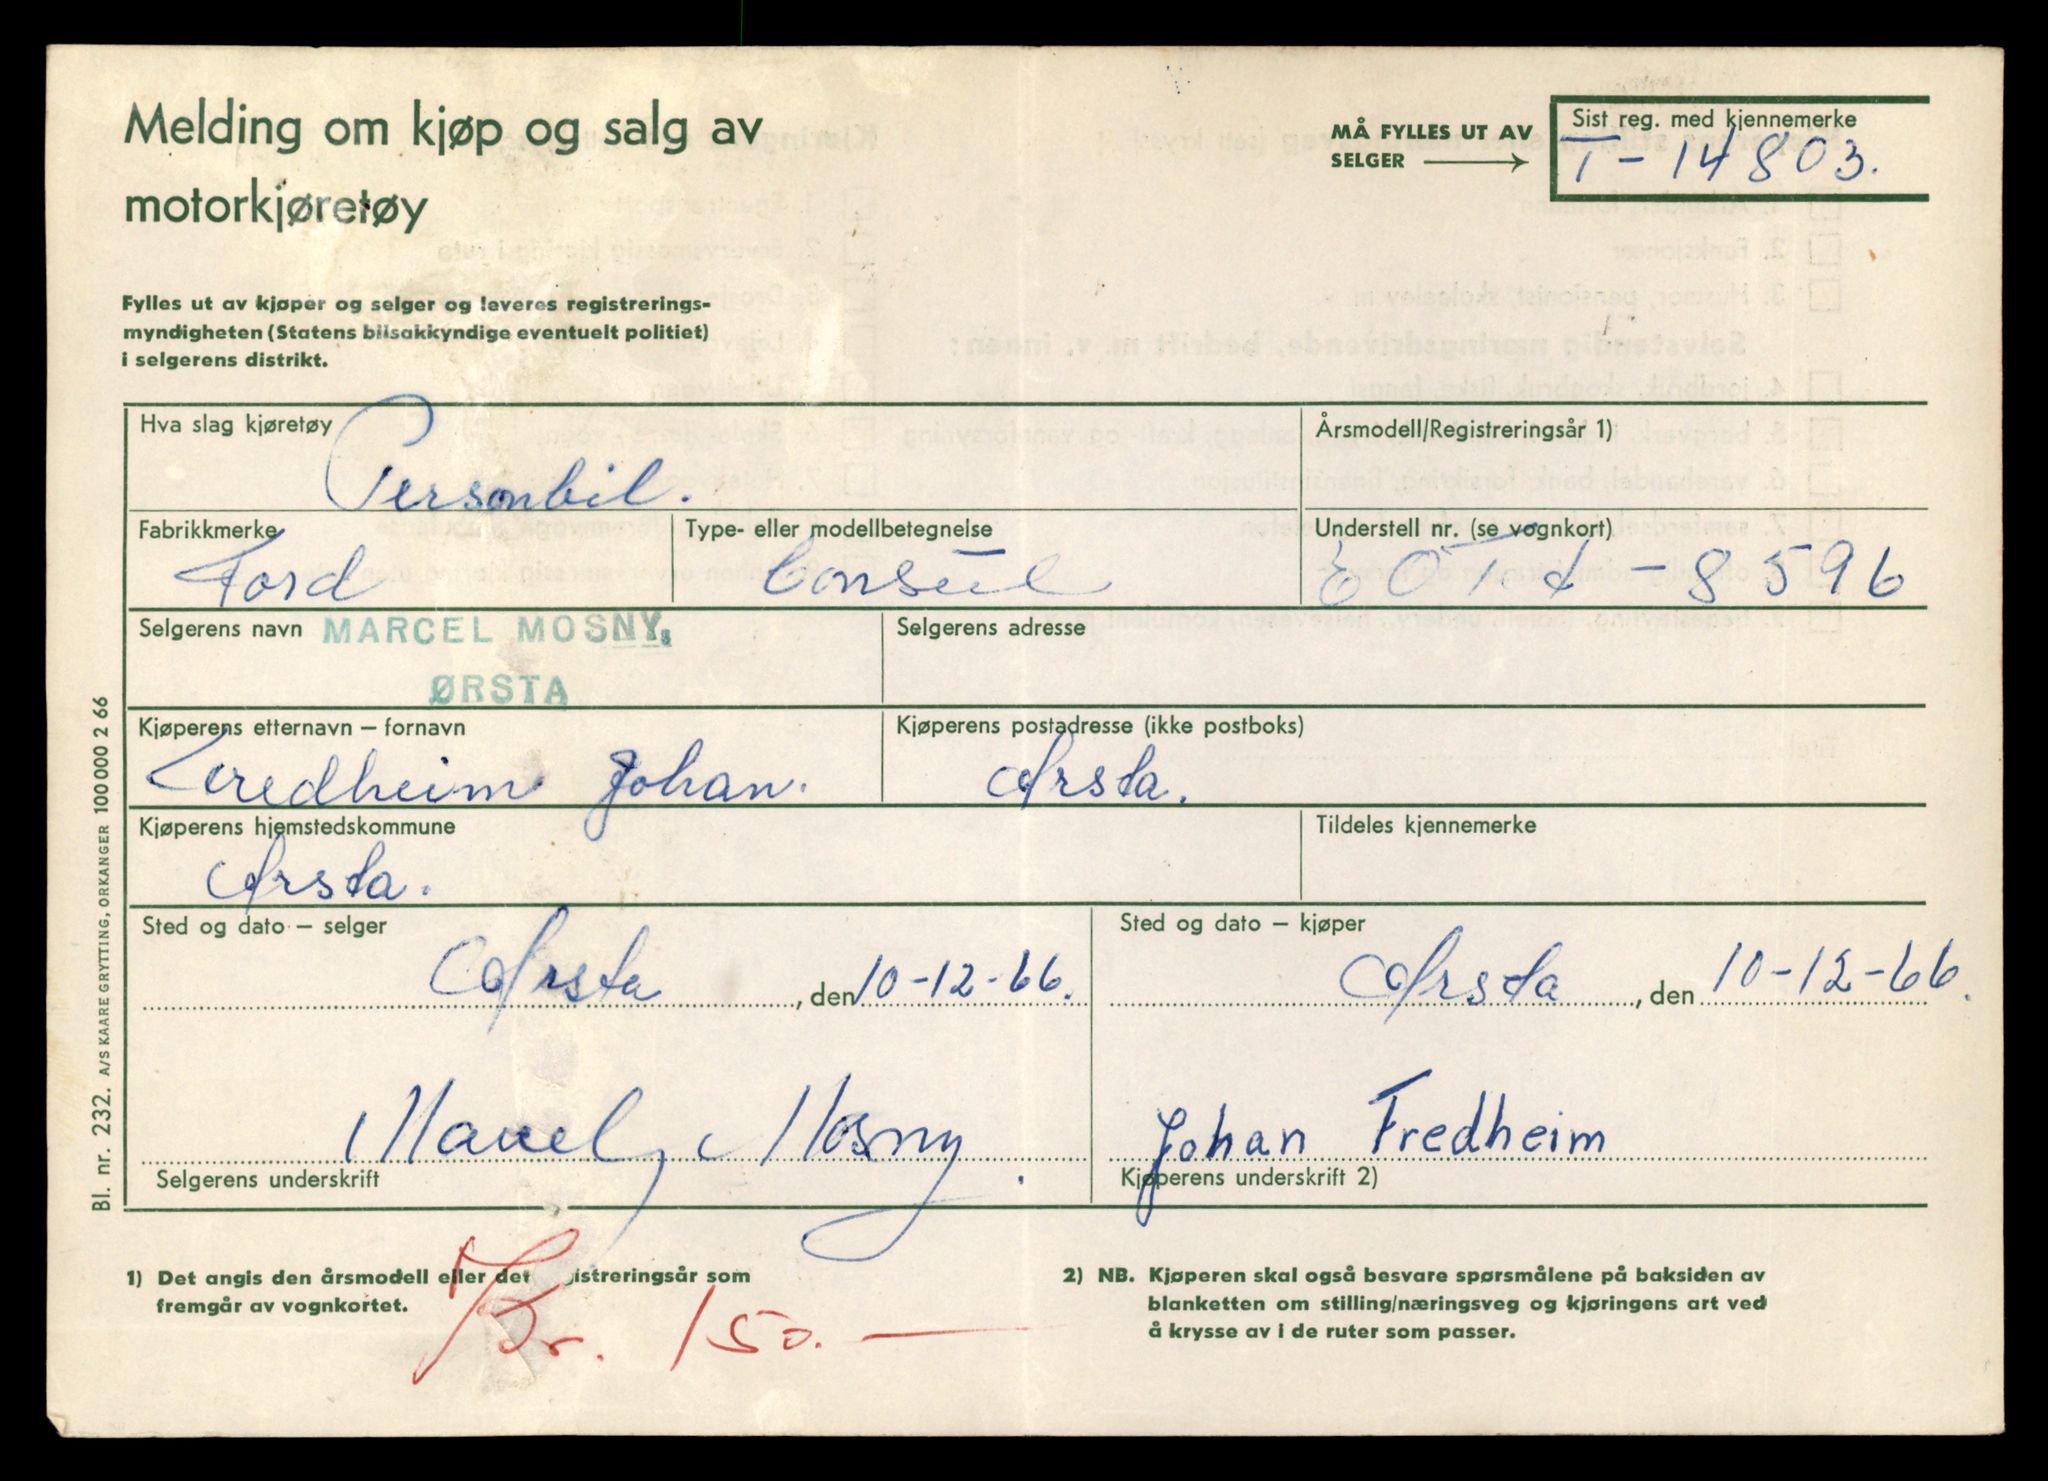 Melding om kjøp og salg av
motorkjøretøy
MÅ FYLLES UT AV
SELGER
Sist reg. med kjennemerke
T-14803.
Fylles ut av kjøper og selger og leveres registrerings-
myndigheten (Statens bilsakkyndige eventuelt politiet)
i selgerens distrikt.
Hva slag kjøretøy
Personbil.
Årsmodell/Registreringsår 1)
Fabrikkmerke
Ford
Type- eller modellbetegnelse
Consul
Understell nr. (se vognkort)
-8596
Selgerens navn
MARCEL MOSNY
ØRSTA
Selgerens adresse
Kjøperens etternavn – fornavn
Fredheim Johan.
Kjøperens postadresse (ikke postboks)
Ørsta.
Kjøperens hjemstedskommune
Ørsta.
Tildeles kjennemerke
Sted og dato – selger
Ørsta, den 10-12-66.
Sted og dato – kjøper
Ørsta, den 10-12-66.
Marcel Mosny.
Selgerens underskrift
Johan Fredheim
Kjøperens underskrift 2)
1) Det angis den årsmodell eller det istreringsår som
fremgår av vognkortet.
Kr. 150.—
2) NB. Kjøperen skal også besvare spørsmålene på baksiden av
blanketten om stilling/næringsveg og kjøringens art ved
å krysse av i de ruter som passer.
Bl. nr. 232. A/S KAARE GRYTTING, ORKANGER 100 000 2 66